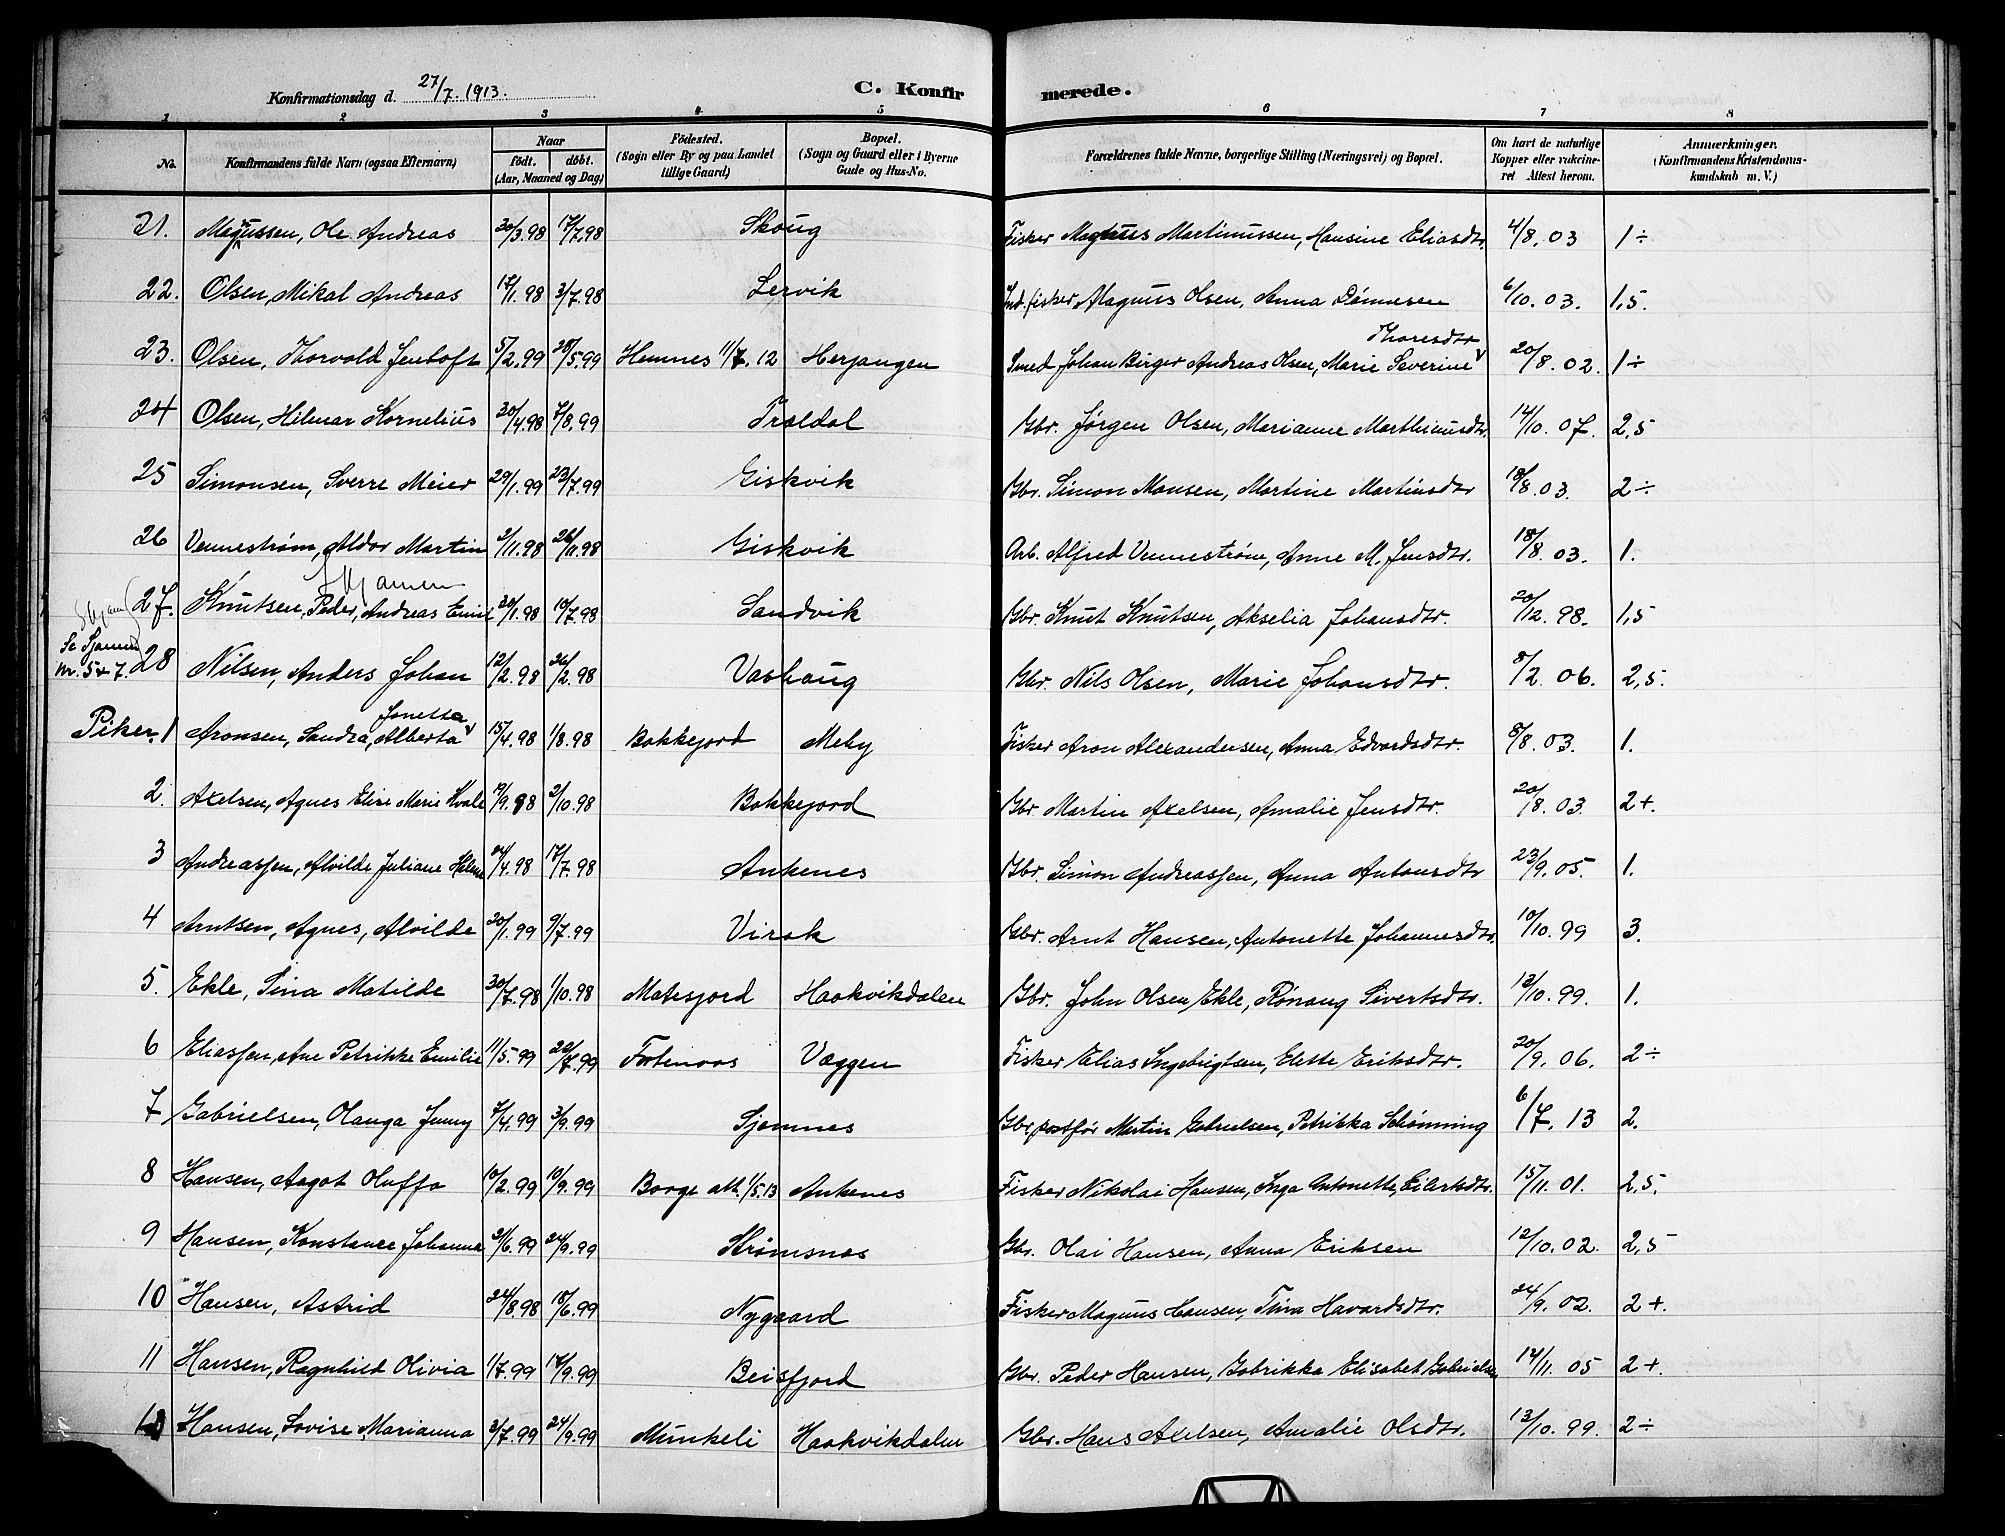 Konfirmationsdag d. 27/7. 1913.
C. Konfirmerede.
1 2 3 4 5 6 7 8
No. Konfirmandens fulde Navn (ogsaa Efternavn) Naar født. døbt. (Aar, Maaned og Dag) Fødested. (Sogn eller By og paa Landet tillige Gaard) Bopæl. (Sogn og Gaard eller i Byerne Gade og Hus-No. Forældrenes fulde Navne, borgerlige Stilling (Næringsvei) og Bopæl. Om havt de naturlige Kopper eller vakcineret Attest herom. Anmærkninger. (Konfirmandens Kristendomskundskab m. V.)
21. Magnussen, Ole Andreas 30/3.98 17/7.98 Skoug Fisker Magnus Martinussen, Hansine Eliasdtr. 4/8. 03 1÷
22. Olsen, Mikal Andreas 17/1.98 3/7.98 Lervik Ind.fisker Magnus Olsen, Anna Dønnesen 6/10. 03. 1,5.
23. Olsen, Thorvald Jentoft 5/2.99 28/5.99 Hemnes 11/7.12 Herjangen Smed Johan Birger Andreas Olsen, Marie Severine Thoresdtr 20/8. 02. 1÷
24 Olsen, Hilmar Kornelius 30/4.98 7/8.99 Traldal Gbr. Jørgen Olsen, Marianne Marthinusdtr. 14/10. 07. 2,5
25 Simonsen, Sverre Meier 29/1.99 23/7.99 Giskvik Gbr. Simon Monsen, Martine Martinsdtr 18/8. 03. 2÷
26 Vennestrøm, Aldor Martin 2/11.98 26/11.98 Giskvik Arb. Alfred Vennestrøm, Anne M. Jensdtr. 18/8. 03. 1.
Skjamen
27. Knutsen, Peder, Andreas Emil 30/1.98 10/7.98 Sandvik Gbr. Knut Knutsen, Akselia Johansdtr. 20/12. 98. 1,5
Se Sjamen nr. 5 & 7.
28 Nilsen, Anders Johan 12/2.98 26/2.98 Vashaug Gbr. Nils Olsen, Marie Johansdtr. 8/2. 06. 2,5.
Piker. 1 Aronsen, Sandra, Alberta Jonetta 15/4.98 1/8.98 Bokkejord Meby Fisker Aron Alexandersen, Anna Edvardsdtr. 8/8. 03. 1.
2. Axelsen, Agnes Elise Marie Hvale 19/9.98 2/10.98 Bokkejord Gbr. Martin Axelsen, Amalie Jensdtr. 20/8. 03. 2+.
3 Andreassen, Alvilde Juliane Helene 24/4.98 17/7.98 Ankenes Gbr. Simon Andreassen, Anna Antonsdtr 23/9. 05. 1.
4 Arntsen, Agnes, Alvilde 20/1.99 9/7.99 Virak Gbr. Arnt Hansen, Antonette Johannesdtr. 10/10. 99 3.
5. Ekle, Sina Matilde 30/7.98 1/10.98 Matisjord Haakvikdalen Gbr. John Olsen Ekle, Rønaug Sivertsdtr. 13/10. 99. 1.
6 Eliassen, Ane Petrikke Emilie 11/5.99 22/7.99 Fortenoas Væggen Fisker Elias Ingebrigtsen, Elette Eriksdtr. 20/9. 06. 2÷
7 Gabrielsen, Olanga Jenny 7/4.99 3/9.99 Sjomnes Gbr. postfør Martin Gabrielsen, Petrikka Schønning 6/7. 13 2.
8 Hansen, Aagot Oluffa 10/2.99 10/9.99 Borge att. 1/5.13 Ankenes Fisker Nikolai Hansen, Inga Antonette, Eilertsdtr. 15/11. 01. 2,5.
9 Hansen, Konstance Johanna 21/6.99 24/9.99 Strømsnas Gbr. Olai Hansen, Anna Eriksen 12/10. 02. 2,5
10 Hansen, Astrid 24/8.98 18/6.99 Nygaard Fisker Magnus Hansen, Tina Havardsdtr. 24/9. 02. 2+.
11 Hansen, Ragnhild Olivia 1/7.99 17/9.99 Beisfjord Gbr. Peder Hansen, Gabrikka Elisabet Gabrielsen 14/11. 05 2+
Hansen, Lovise Marianna 3/7.99 24/9.99 Munkeli Haakvikdalen Gbr. Hans Axelsen, Amalie Olsdtr. 13/10. 99. 2÷